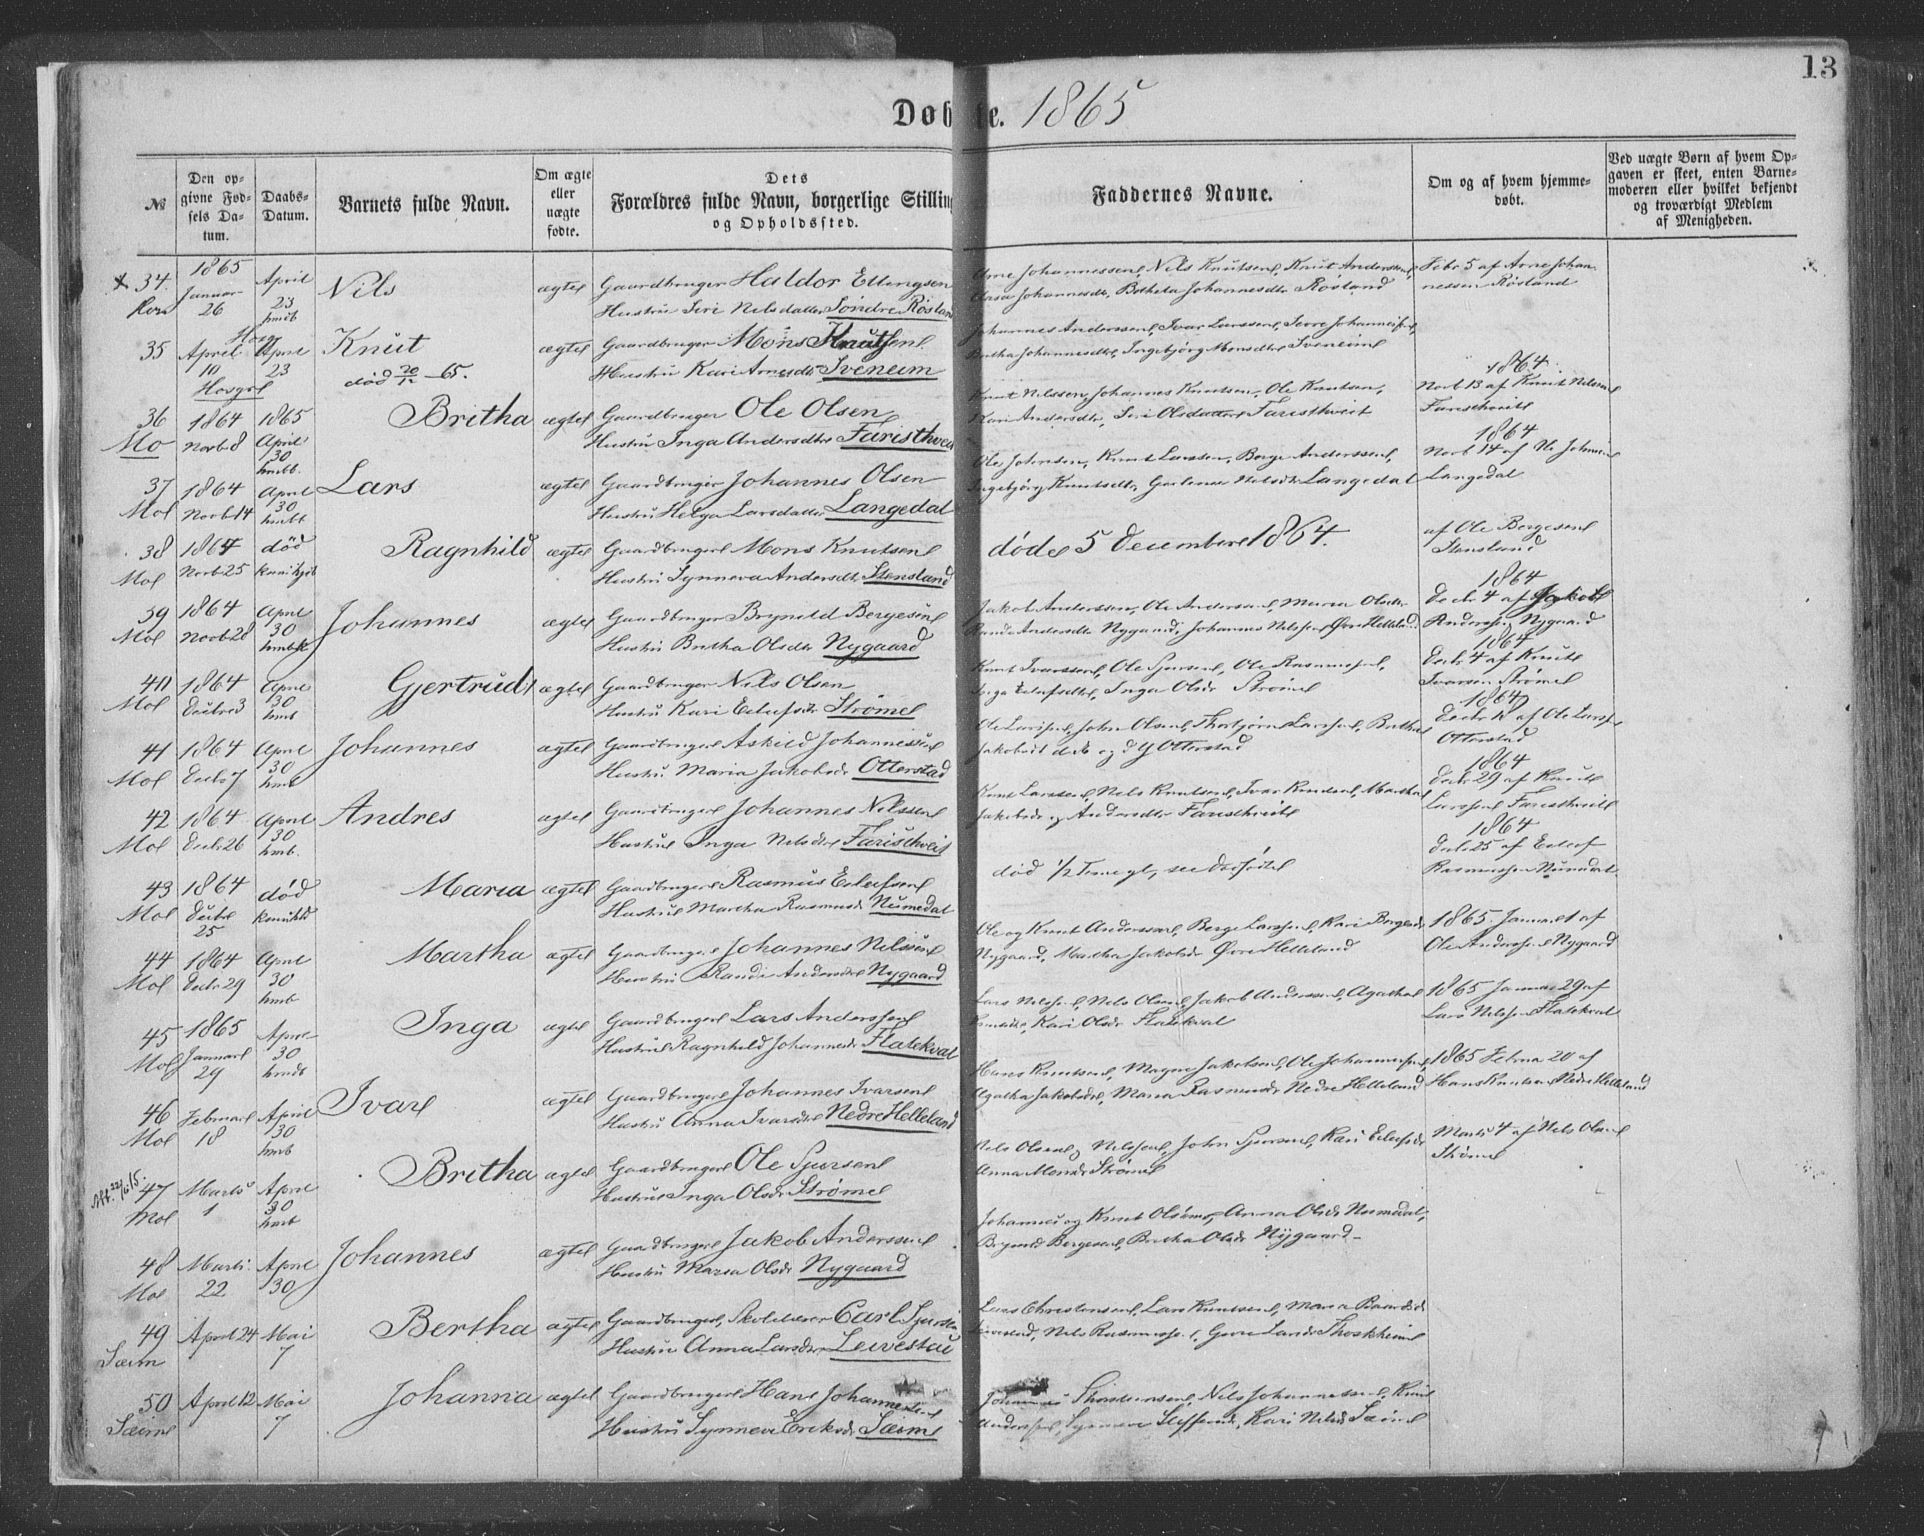 13
Døbte. 1865
№
Den opgivne Fødsels Datum.
Daabs-Datum.
Barnets fulde Navn.
Om ægte eller uægte fødte.
Dets Forældres fulde Navn, borgerlige Stilling og Opholdssted.
Faddernes Navne.
Om og af hvem hjemmedøbt.
Ved uægte Børn af hvem Opgaven er skeet, enten Barnemoderen eller hvilket bekjendt og troværdigt Medlem af Menigheden.
34. 1865 Januar 26 April 23 hmdb Nils ægte Gaardbruger Haldor Ellingsen
Hustru Siri Nilsdatter Søndre Røsland
Arne Johannessen, Nils Knutsen, Knut Andersen,
Johannesdtr, Johannesdtr Røsland
Febr 5 af Arne Johannessen Røsland
35 April 10 April 23 Knut ægte Gaardbruger Mons Knutsen
død 20/12 -65. Hustru Kari Arnesdtr Iveneim
Johannes Anderssen, Ivar Larssen,
Britha Johannesdtr, Ingebjørg Monsdtr Iveneim
36 Mo 1864 Novb 8 1865 April 30 hmdb. Britha ægte Gaardbruger Ole Olsen
Hustru Inga Andersdtr Faristhveit
Knut Nilssen, Johannes Knutsen, Ole Knutsen,
Kari Andersdtr, Siri Olsdatter Faristhveit
1864 Novb 13 af Knut Nilssen
37 Mo 1864 Novb 14 April 30 hmdb Lars ægte Gaardbruger Johannes Olsen
Hustru Helga Larsdatter Langedal
Ole Johnsen, Knut Larssen, Børge Anderssen,
Ingebjørg Knutsdtr, Nilsdtr Langedal
1864 Novb 14 af Langedal
38 Mo 1864 Novb 25 død Ragnhild ægte Gaardbruger Mons Knutsen
Hustru Synneva Andersdtr Stensland
døde 5 December 1864.
af Ole Børgesen Stensland
39 Mo 1864 Novb 28 April 30 Johannes ægte Gaardbruger Brynild Børgesen
Hustru Britha Olsdtr Nygaard
Jakob Anderssen, Ole Anderssen, Maria Olsdtr
Andersdtr Nygaard, Johannes Nilsen Øvre Helleland
1864 Decbr 4 af Jakob Andersen Nygaard
40 Mo 1864 Decbr 3 April 30 hmb Gjertrud ægte Gaardbruger Nils Olsen
Hustru Kari Strømel
Knut Ivarssen, Ole Sjursen, Ole Rasmussen,
Inga Olsdr Strømel
1864 Decbr 4 af Knut Ivarsen Strømel
41 Mo 1864 Decbr 7 April 30 hmb Johannes ægte Gaardbruger Askild Johannessen
Hustru Maria Jakobsdr Otterstad
John Olsen, Thorbjørn Larssen,
Jakobsdtr og Otterstad
1864 Decbr 18 af Ole Otterstad
42 Mo 1864 Decbr 26 April 30 hmb. Andres ægte Gaardbruger Johannes Nilssen
Hustru Inga Nilsdtr Faristhveit
Knut Larssen, Nils Knutsen, Ivar Knutsen, Martha
Jakobsdr og Andersdtr Faristhveit
1864 Decbr 29 af Knut Larssen Faristhveit
43 Mo 1864 Decbr 25 død Maria ægte Gaardbruger Rasmus Eilefsen
Hustru Martha Rasmusdr Numedal
død 1/2
1864 Decbr 25 af Eilef Rasmussen Numedal
44 Mo 1864 Decbr 29 April 30 hmb Martha ægte Gaardbruger Johannes Nilssen
Hustru Randi Andersdtr Nygaard
Ole og Knut Anderssen, Børge Larssen, Kari Børgesdr
Nygaard, Martha Jakobsdr Øvre Helleland
1865 Januar 1 af Ole Anderssen Nygaard
45 Mo 1865 Januar 29 April 30 hmdb Inga ægte Gaardbruger Lars Anderssen
Hustru Ragnhild Johannesdr Flatekval
Lars Nilssen, Nils Olsen, Jakob Anderssen, Agatha
Kari Olsdr Flatekval
1865 Januar 29 af Lars Nilssen Flatekval
46 Mo Februar 18 April 30 hmb Ivar ægte Gaardbruger Johannes Ivarsen
Hustru Anna Ivarsdtr Nedre Helleland
Hans Knutsen, Magne Jakobsen, Ole Johannessen,
Agatha Jakobsdr, Maria Rasmusdr Nedre Helleland
1865 Februar 20 af Hans Knutsen Nedre Helleland
47 Mo Marts 1 April 30 hmb Britha ægte Gaardbruger Ole Sjursen
Hustru Inga Olsdr Strømel
Nils Olsen, Nilssen, John Sjursen, Kari Eilefsdr
Anna Monsdr Strømel
Marts 4 af Nils Olsen Strømel
48 Mo Marts 22 April 30 Johannes ægte Gaardbruger Jakob Anderssen
Hustru Maria Olsdr Nygaard
Johannes og Knut Olsen, Anna Olsdr Numedal,
Brynild Børgesen, Britha Olsdr Nygaard
49 Sæim April 24 Mai 7 Bertha ægte Gaardbruger, Skolelærer Carl Sjursen
Hustru Anna Larsdr Leivestad
Lars Christensen, Lars Knutssen, Maria Baardsdr
Nils Rasmussen,
50 Sæim April 12 Mai 7 Johanna ægte Gaardbruger Hans Johannessen
Hustru Synneve Eriksdr Sæim
Johannes Thorsteinsen, Nils Johannessen, Knut
Anderssen, Synneve Steffensdr, Kari Nilsdr Sæim